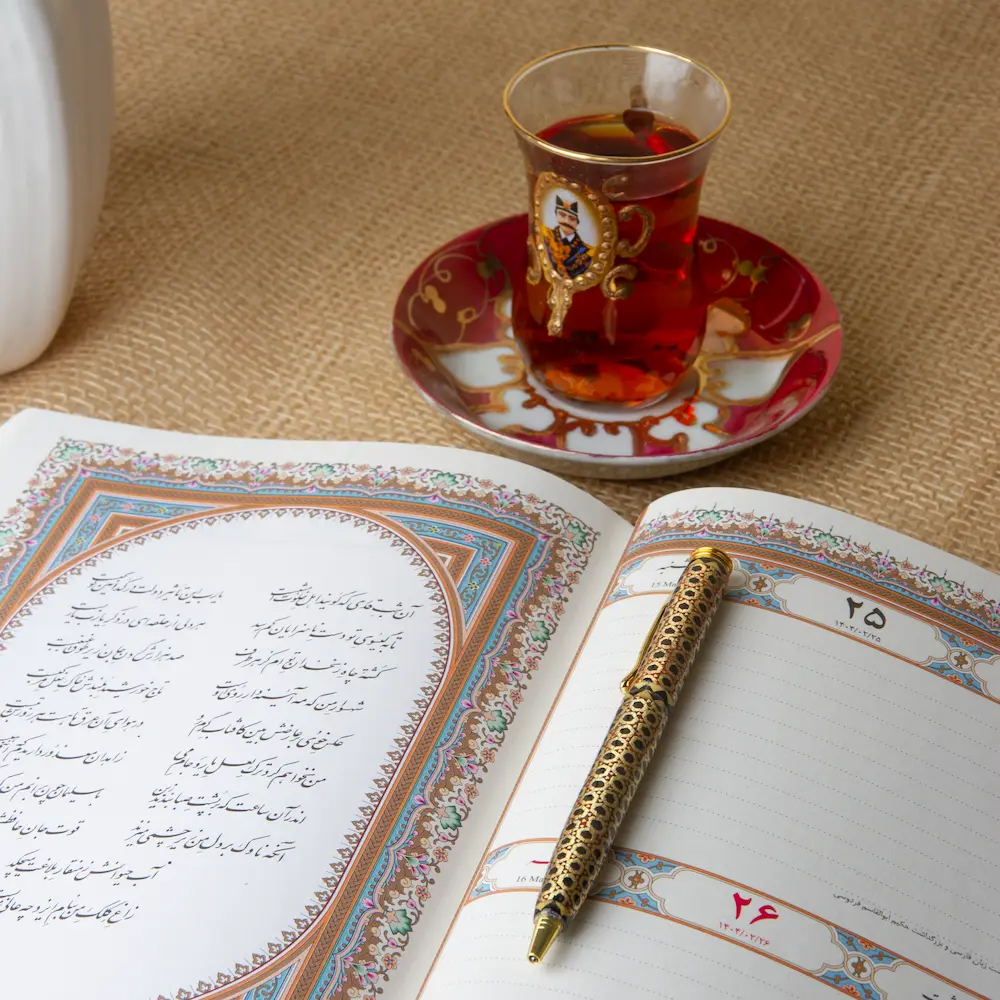 آن شب قدری که گویند اهل خلوت امشب است یارب این تاثیر دولت در کدامین کوکب است
تا به گیسوی تو دست ناسزایان کم رسد هر دلی از حلقه‌ای در ذکر یارب یارب است
کشته چاه زنخدان توام کز هر طرف صد هزارش گردن جان زیر طوق غبغب است
شهسوار من که مه آیینه‌دار روی اوست تاج خورشید بلندش خاک نعل مرکب است
عکس خوی بر عارضش بین کافتاب گرم‌رو در هوای آن عرق تا هست هر روزش
من نخواهم کرد ترک لعل یار و جام می زاهدان معذور داریدم که
اندر آن ساعت که بر پشت صبا بندند زین با سلیمان چون برانم من که
آنکه ناوک بر دل من زیر چشمی می‌زند قوت جان حافظش
آب حیوانش ز منقار بلاغت می‌چکد
زاغ کلک من بنام ایزد چه عالی
15 Ma
۲۵
۱۴۰۴/۰۲/۲۵
زبان فارسی و بزرگداشت حکیم ابوالقاسم فردوسی
16 Ma
۲۶
۱۴۰۴/۰۲/۲۶